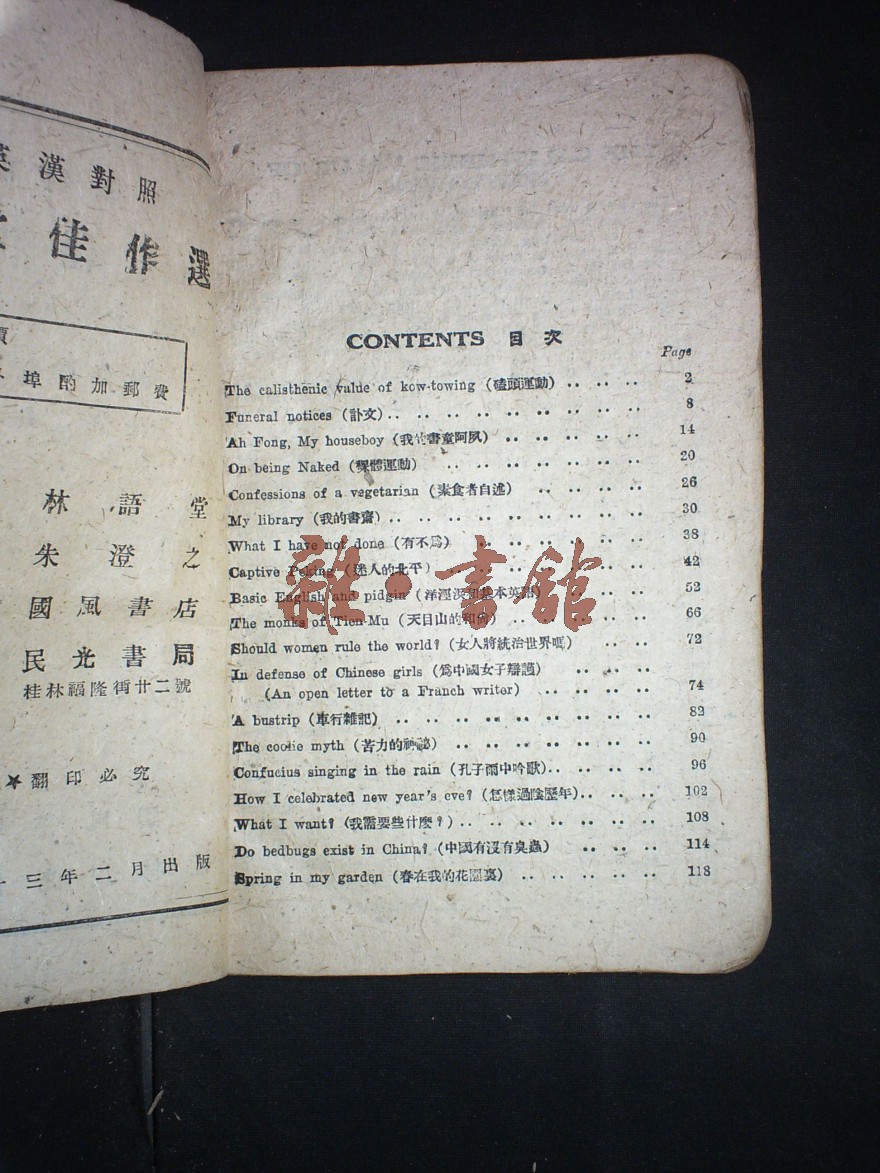 漢對照
佳作選
埠酌加郵費
林語堂
朱澄之
國風書店
民光書局
桂林福隆街廿二號
★翻印必究
三年二月出版
CONTENTS 目次
Page
The calisthenic value of kow-towing (磕頭運動) .. .. .. .. 2
Funeral notices (訃文).. .. .. .. .. .. .. .. .. 8
Ah Fong, My houseboy (我的書童阿夙) .. .. .. .. .. 14
On being Naked (裸體運動) .. .. .. .. .. .. .. 20
Confessions of a vegetarian (素食者自述) .. .. .. .. 26
My library (我的書齋).. .. .. .. .. .. .. .. .. 30
What I have not done (有不爲) .. .. .. .. .. .. 38
Captive Peking (迷人的北平) .. .. .. .. .. .. 42
Basic English and pidgin (洋涇浜和基本英語) .. .. .. .. 52
The monks of Tien Mu (天目山的和尙) .. .. .. .. .. 66
Should women rule the world? (女人將統治世界嗎) .. .. .. 72
In defense of Chinese girls (爲中國女子辯護)
(An open letter to a Franch writer) .. .. .. .. 74
A bustrip (車行雜記) .. .. .. .. .. .. .. .. .. 82
The coolie myth (苦力的神祕) .. .. .. .. .. .. .. 90
Confucius singing in the rain (孔子雨中吟歌).. .. .. .. 96
How I celebrated new year's eve? (怎樣過陰歷年).. .. .. 102
What I want? (我需要些什麼?).. .. .. .. .. .. .. 108
Do bedbugs exist in China? (中國有沒有臭蟲) .. .. .. .. 114
Spring in my garden (春在我的花園裏) .. .. .. .. .. 118
雜·書館